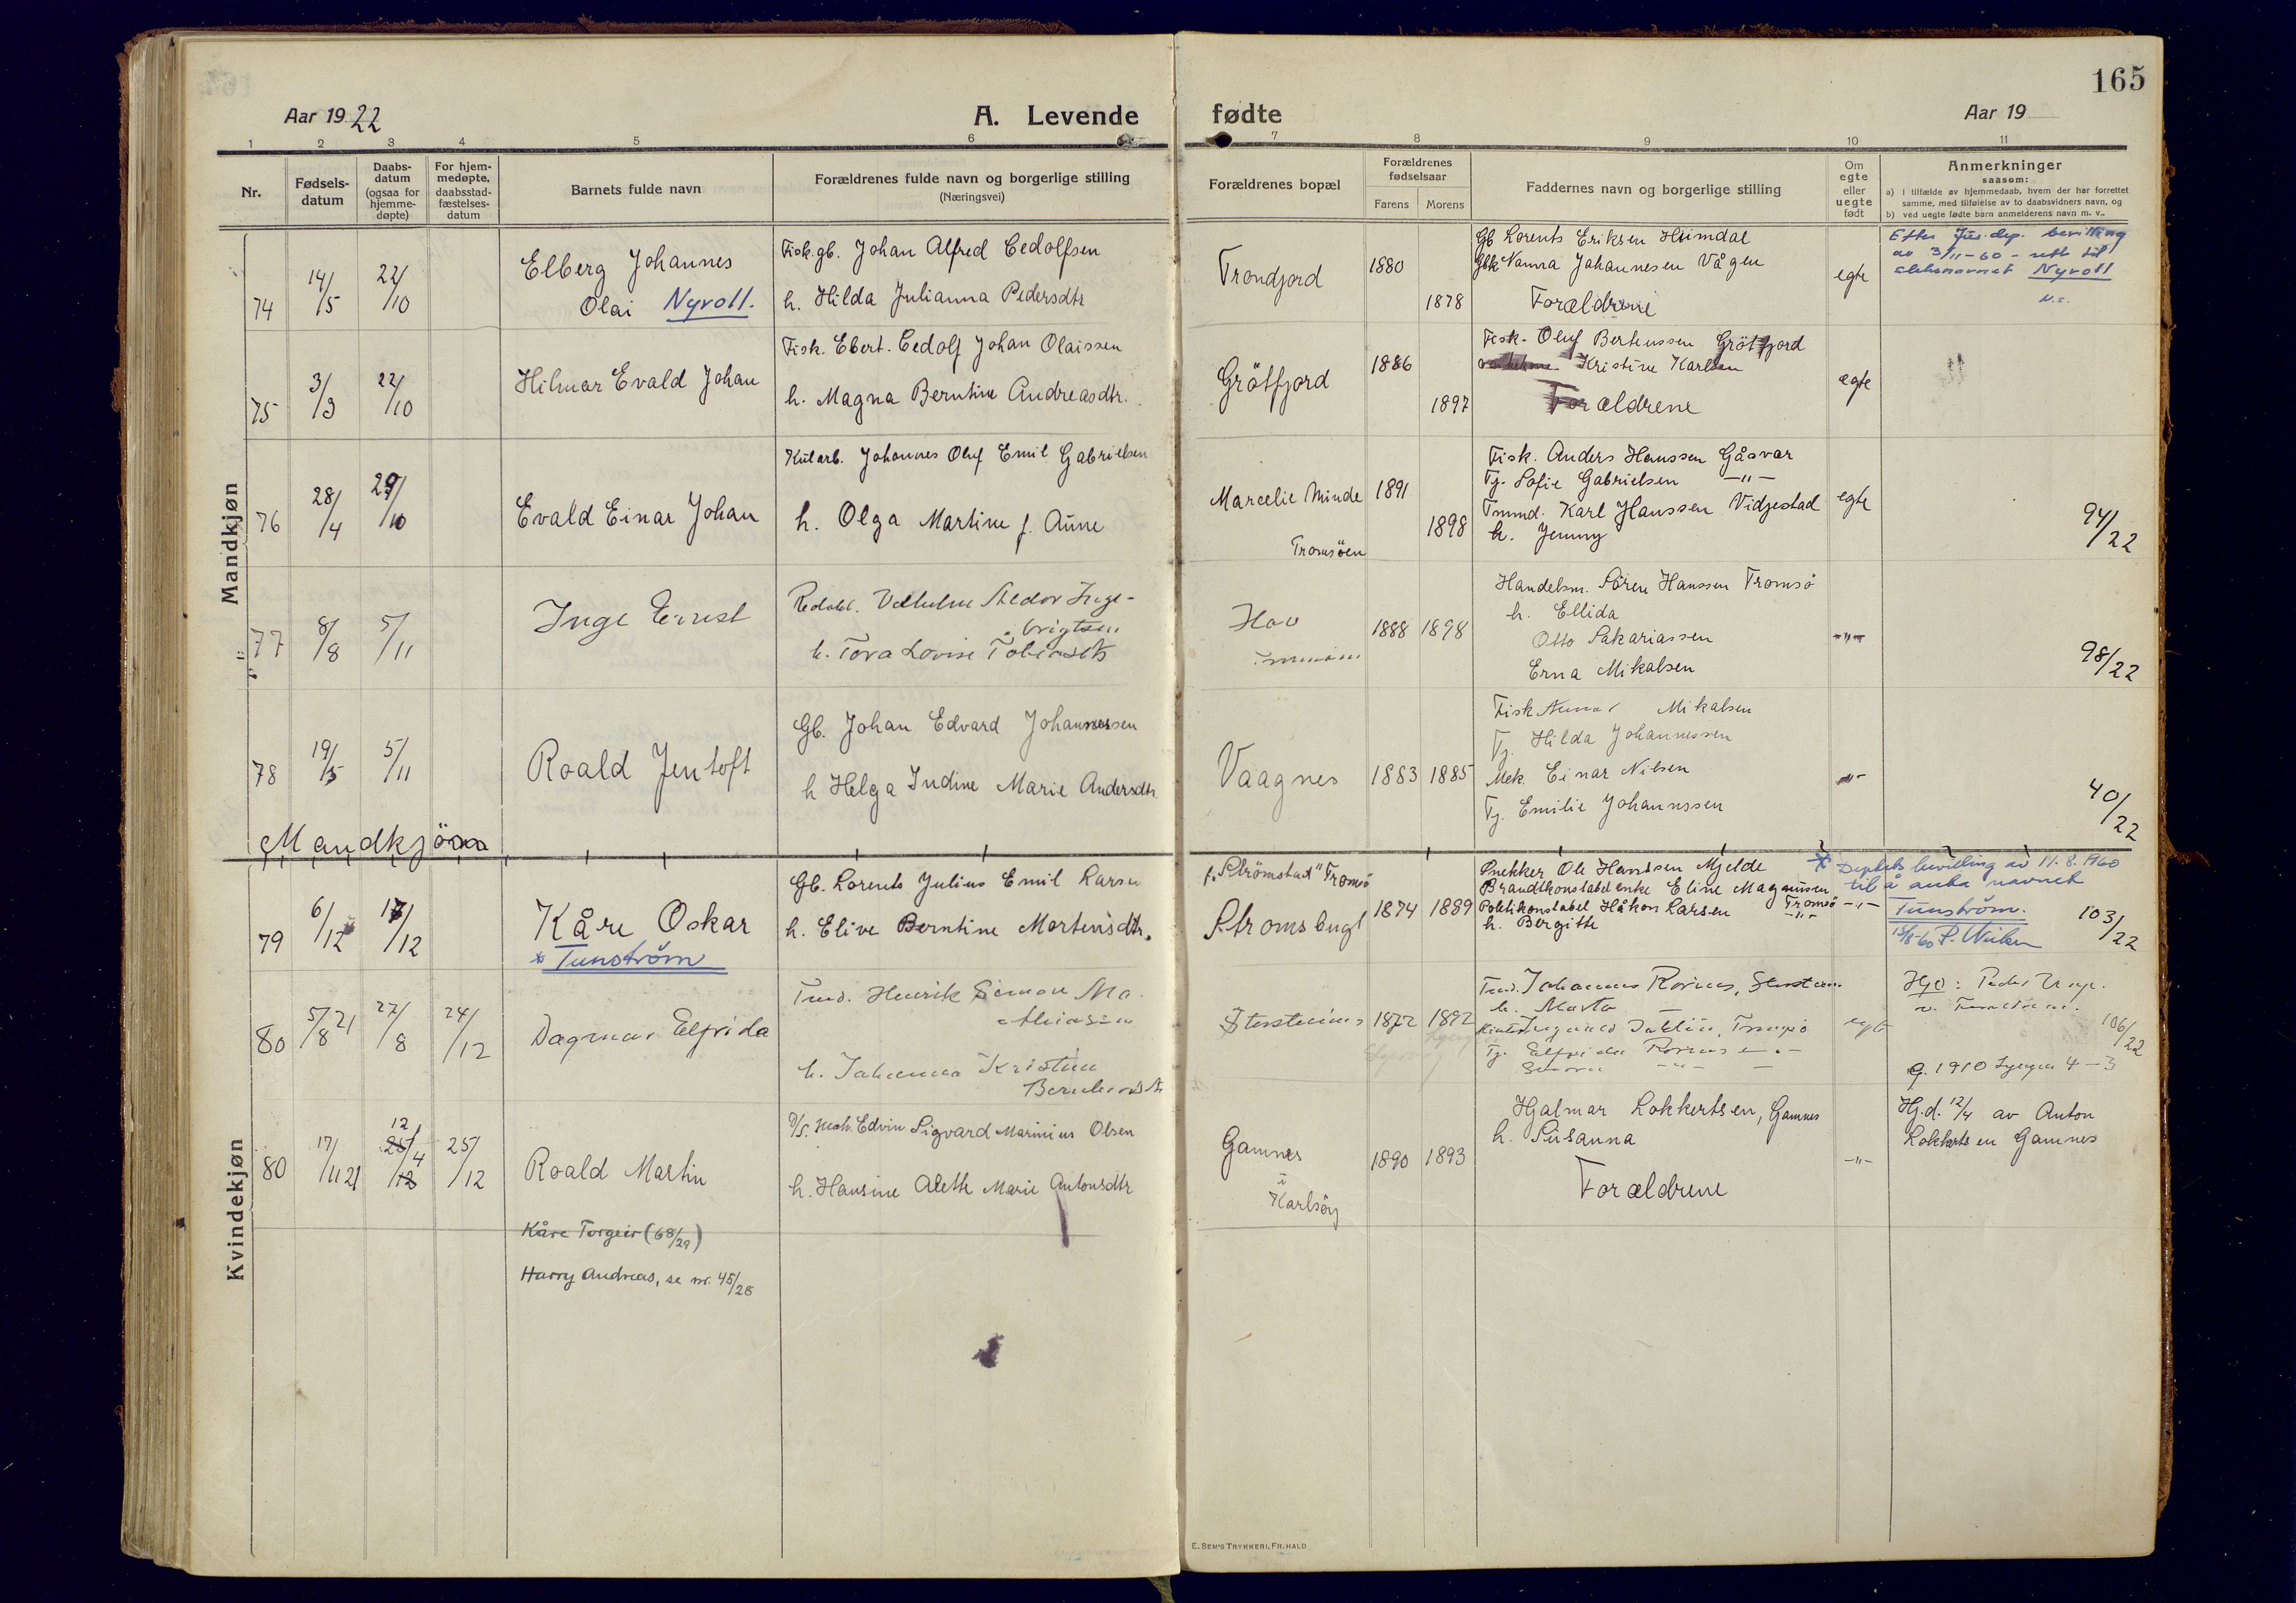 165
Aar 1922
A. Levende fødte
Aar 19
1 2 3 4 5 6 7 8 9 10 11
Nr.
Fødsels-
datum
Daabs-
datum
(ogsaa for
hjemme-
døpte)
For hjem-
medøpte,
daabsstad-
fæstelses-
datum
Barnets fulde navn
Forældrenes fulde navn og borgerlige stilling
(Næringsvei)
Forældrenes bopæl
Forældrenes
fødselsaar
Farens Morens
Faddernes navn og borgerlige stilling
Om
egte
eller
uegte
født
Anmerkninger
saasom:
a) i tilfælde av hjemmedaab, hvem der har forrettet
samme, med tilføielse av to daabsvidners navn, og
b) ved uegte fødte barn anmelderens navn m. v..
Mandkjøn
74 14/5 22/10
Elberg Johannes
Olai Nyvoll.
Fisk.gb. Johan Alfred Cedolfsen
h. Hilda Julianna Pedersdtr
Trondjord
1880
1878
Gb Lorents Eriksen Heimdal
Gbk Nanna Johannesen Vågen
Forældrene
egte
Efter Jus.dep. bevilling
av 3/11-60 - rett til
slektsnavnet Nyvoll
75 3/3 22/10
Hilmar Evald Johan
Fisk. Ebert. Cedolf Johan Olaissen
h. Magna Berntine Andreasdtr.
Grötfjord
1886
1897
Fisk. Oluf Berteussen Grötfjord
Kristine Karlsen
Forældrene
egte
76 28/4 29/10
Evald Einar Johan
Kularb. Johannes Oluf Emil Gabrielsen
h. Olga Martine f. Aune
Marcelie Minde
Tromsöen
1891
1898
Fisk. Anders Hanssen Gåsvær
Tj. Sofie Gabrielsen -"-
Tmmd. Karl Hanssen Vidjestad
h. Jenny
egte
94/22
77 8/8 5/11
Inge Ernst
h. Tora Lovise
Hov
1888 1898
Handelsm. Sören Hanssen Tromsö
h. Ellida
Otto Sakariassen
Erna Mikalsen
-"-
98/22
78 19/5 5/11
Roald Jentoft
Gb. Johan Edvard Johannessen
h Helga Indine Marie Andersdtr.
Vaagnes
1883 1885
Fisk Mikalsen
Tj. Hilda Johannessen
Mek. Einar Nilsen
Tj. Emilie Johannssen
-"-
40/22
Mandkjönn
79 6/12 17/12
Kåre Oskar
* Tunström
Gb. Lorents Julius Emil Larsen
h. Elive Berntine Mortensdtr.
f. "Strömstad" Tromsö
Stromsbugt
1874 1889
Snekker Ole Hansen Mjelde
Brandkonstabel enke Eline Magnussen
Politikonstabel Håkon Larsen Tromsö
h. Bergitte -"-
-"-
* Deptets bevilling av 11.8.1960
til å anta navnet
Tunström.
15/8-60
103/22
80 5/8 21 27/8 24/12
Dagmar Elfrida
Henrik Simon
h. Johanna Kristine
1872 1892
h. Marta
106/22
g. 1910 Lyngen 4-3
Kvindekjøn
80 17/11 21 12/4 25/12 25/12
Roald Martin
D/S. Mask. Edvin Sigvard Marinius Olsen
h. Hansine Aleth Marie Antonsdtr
Gamnes
i
Karlsöy
1890 1893
Hjalmar Lokkertsen, Gamnes
h. Susanna
Forældrene
-"-
Hj.d. 12/4 av Anton
Lokkertsen Gamnes
Kåre Torgeir (68/29)
Harry Andreas, se nr. 45/28
E. SEM'S TRYKKERI, FR.HALD